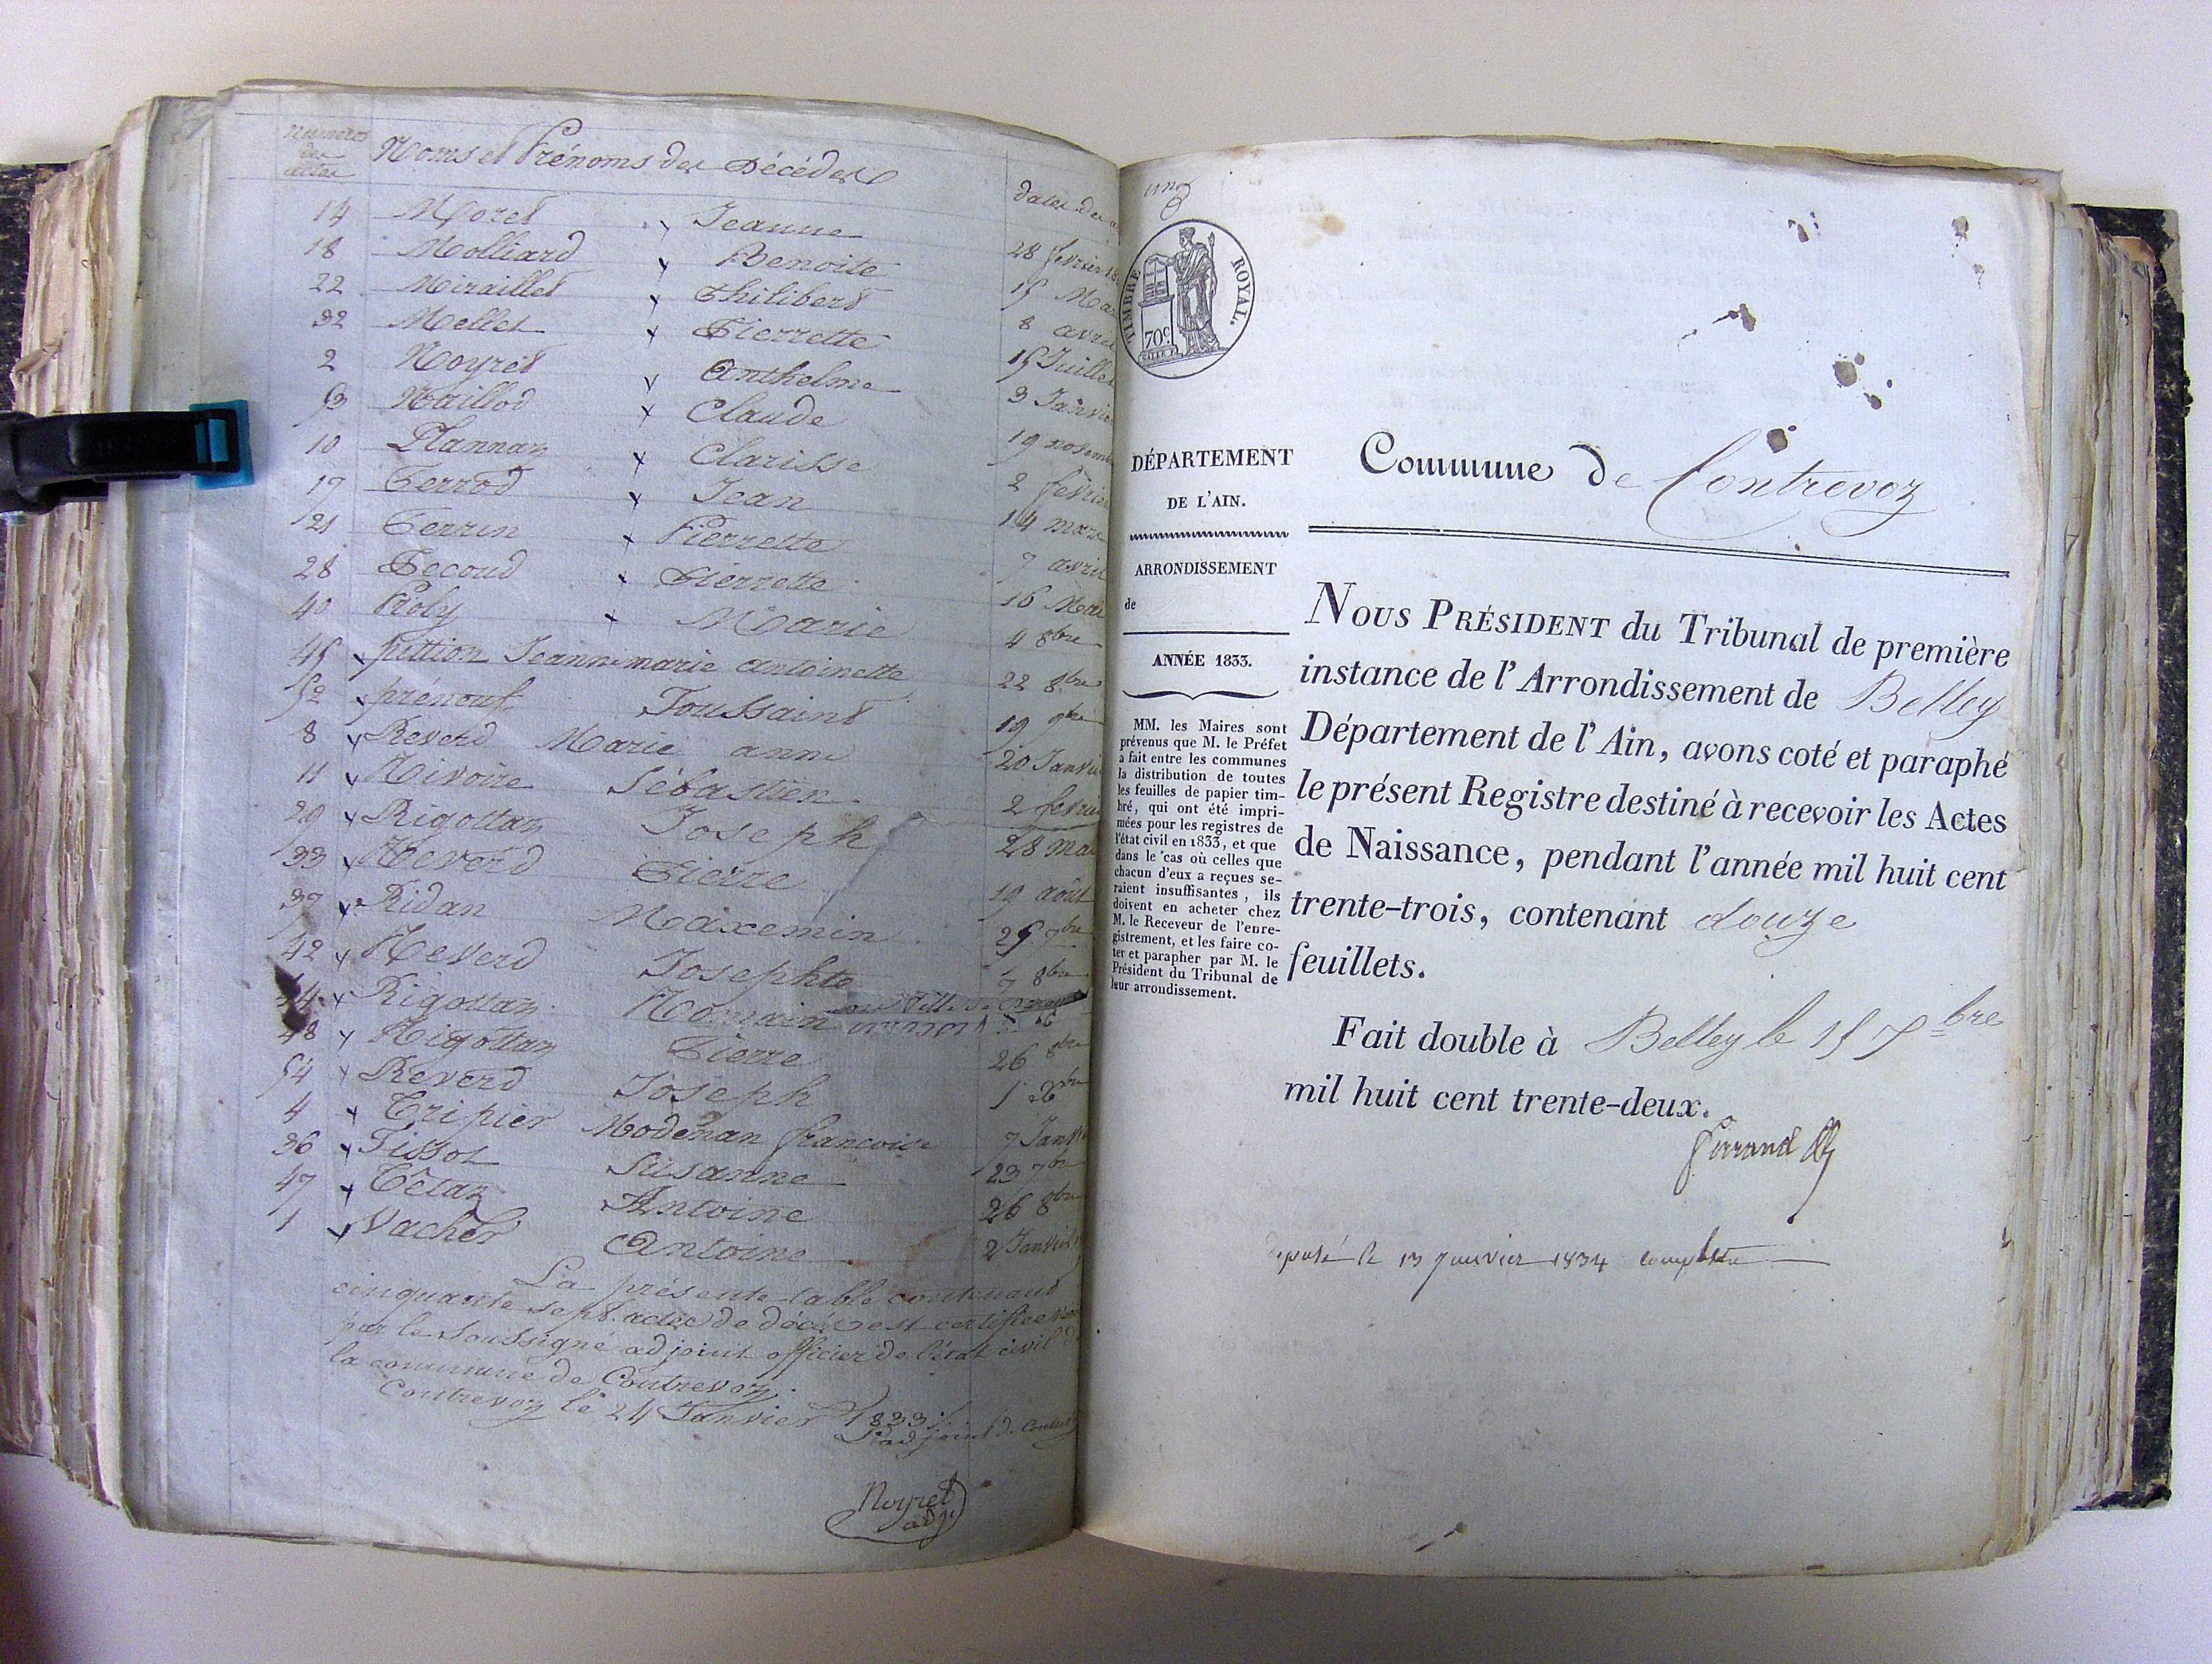 Numéros des actes Noms et Prénoms des Décédés dates des
14 Moret Jeanne 28 février
18 Molliard Benoite 15 Mar
22 Miraillet Philibert 8 avril
32 Mellet Pierrette 15 Juillet
2 Noyret Anthelme 3 Janvier
53 Naillod Claude 19 novemb
10 Plannaz Clarisse 2 février
17 Perrod Jean 14 mars
21 Perrin Pierrette 7 avril
28 Pecoud Pierrette 16 Mai
40 Poly Marie 4 8bre
45 pittion Jeanne marie antoinette 22 8bre
52 prénout Toussaint 19 9bre
8 Reverd Marie anne 20 Janvier
11 Rivoire Sébastien 2 fevri
29 Rigottaz Joseph 28 mai
33 Reverd Pierre 19 août
37 Ridan Maxemin 25 7bre
42 Reverd Josephte 7 8bre
44 Rigottaz Romain
48 Rigottaz Pierre 26 8bre
54 Reverd Joseph 1 Xbre
4 Tripier Modeman francoise 7 Janvi
36 Tissot Susanne 23 7bre
47 Têtaz Antoine 26 8bre
1 Vacher Antoine 2 Janvier
La présente table contenant
cinquante sept actes de décès est certifiée
par le soussigné adjoint officier de l'état civil
la commune de Contrevoz.
Contrevoz le 24 Janvier 1833
L'adjoint de
Noyret adj
TIMBRE ROYAL.
70c.
DÉPARTEMENT
DE L'AIN.
ARRONDISSEMENT
de
ANNÉE 1833.
MM. les Maires sont
prévenus que M. le Préfet
a fait entre les communes
la distribution de toutes
les feuilles de papier tim-
bré, qui ont été impri-
mées pour les registres de
l'état civil en 1833, et que
dans le cas où celles que
chacun d'eux a reçues se-
raient insuffisantes, ils
doivent en acheter chez
M. le Receveur de l'enre-
gistrement, et les faire co-
ter et parapher par M. le
Président du Tribunal de
leur arrondissement.
Commune de Contrevoz
NOUS PRÉSIDENT du Tribunal de première
instance de l'Arrondissement de Belley
Département de l'Ain, avons coté et paraphé
le présent Registre destiné à recevoir les Actes
de Naissance, pendant l'année mil huit cent
trente-trois, contenant douze
feuillets.
Fait double à Belley le 15 7bre
mil huit cent trente-deux.
déposé le 13 Janvier 1834